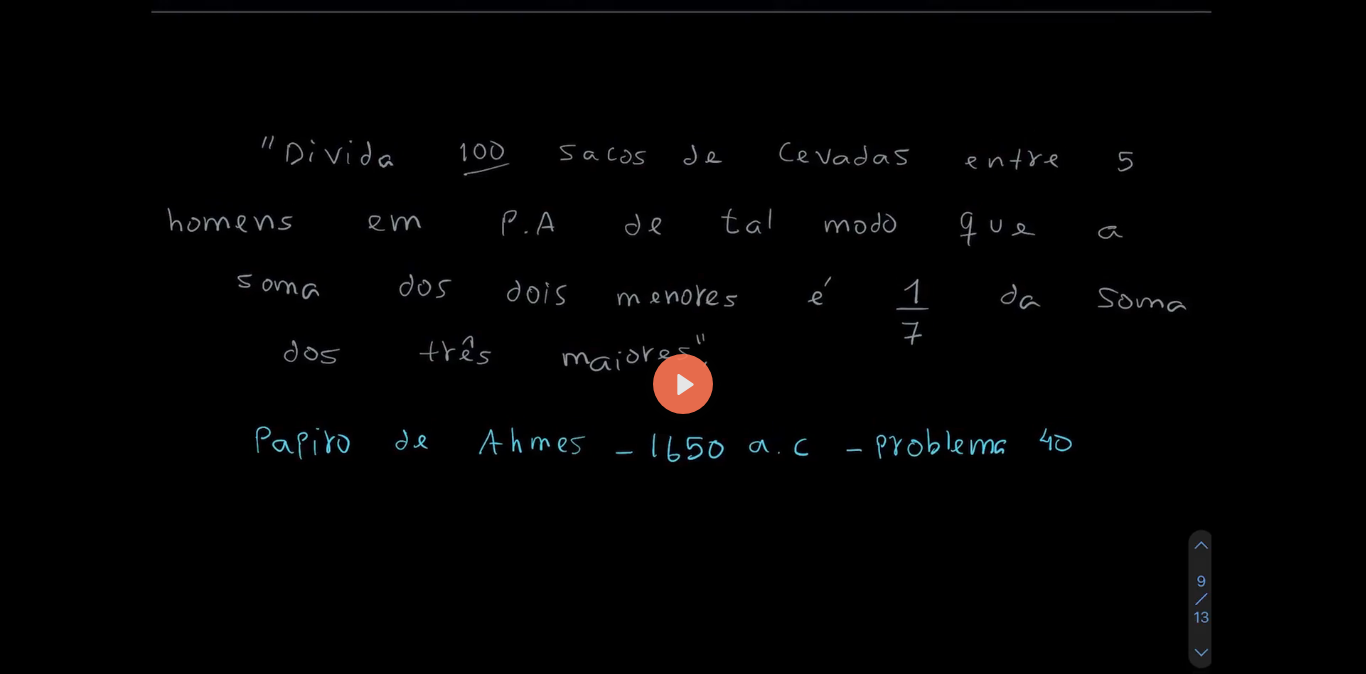 "Divida 100 sacos de cevadas entre 5
homens em P.A de tal modo que a
soma dos dois menores é 1/7 da soma
dos três maiores".
Papiro de Ahmes - 1650 a.c - problema 40
9
/
13